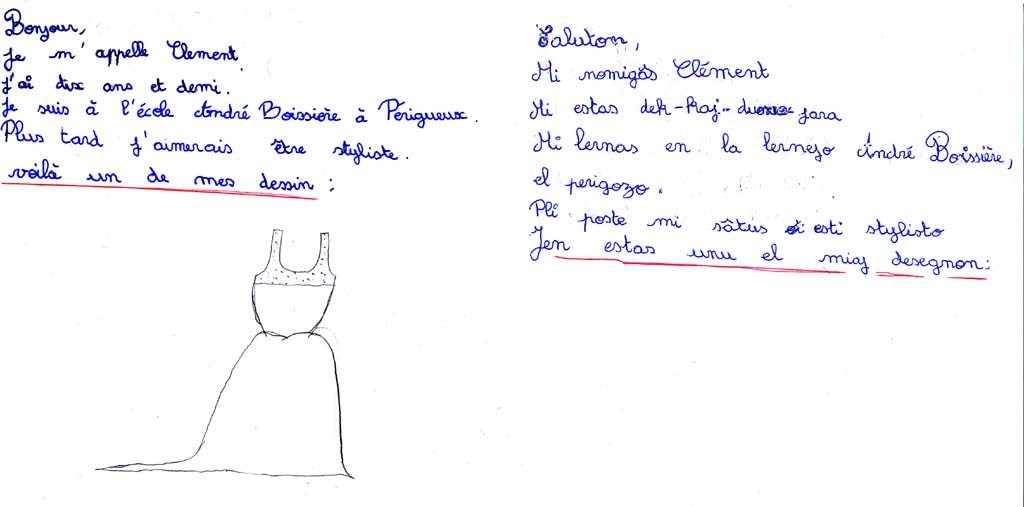 Bonjour,
Je m'appelle Clement.
J'ai dix ans et demi.
Je suis à l'école André Boissière à Périgueux.
Plus tard j'aimerais être styliste.
voilà un de mes dessin :
Saluton,
Mi nomiĝas Clément
Mi estas dek-kaj-duono-jara
Mi lernas en la lernejo André Boissière,
el perigozo.
Pli poste mi ŝatus esti stylisto
Jen estas unu el miaj desegnon: